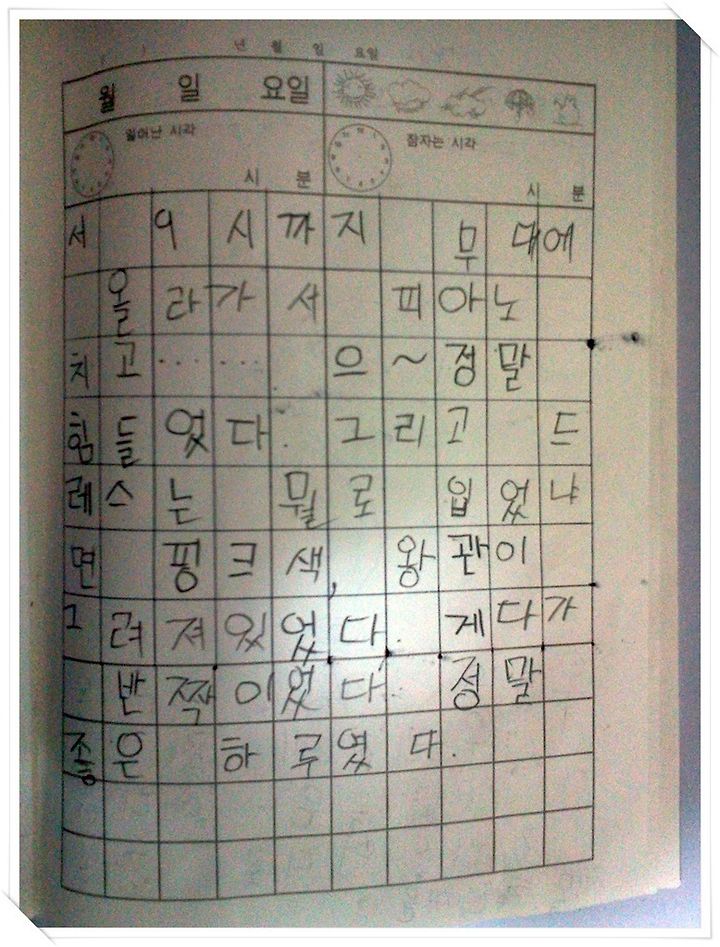 년 월 일 요일
월 일 요일
일어난 시각 잠자는 시각
시 분 시 분
서 9시까지 무대에
올라가서 피아노
치고...... 으~정말
힘들었다. 그리고 드
레스는 뭘로 입었냐
면 핑크색, 왕관이
그려져있었다. 게다가
반짝이었다. 정말
좋은 하루였다.